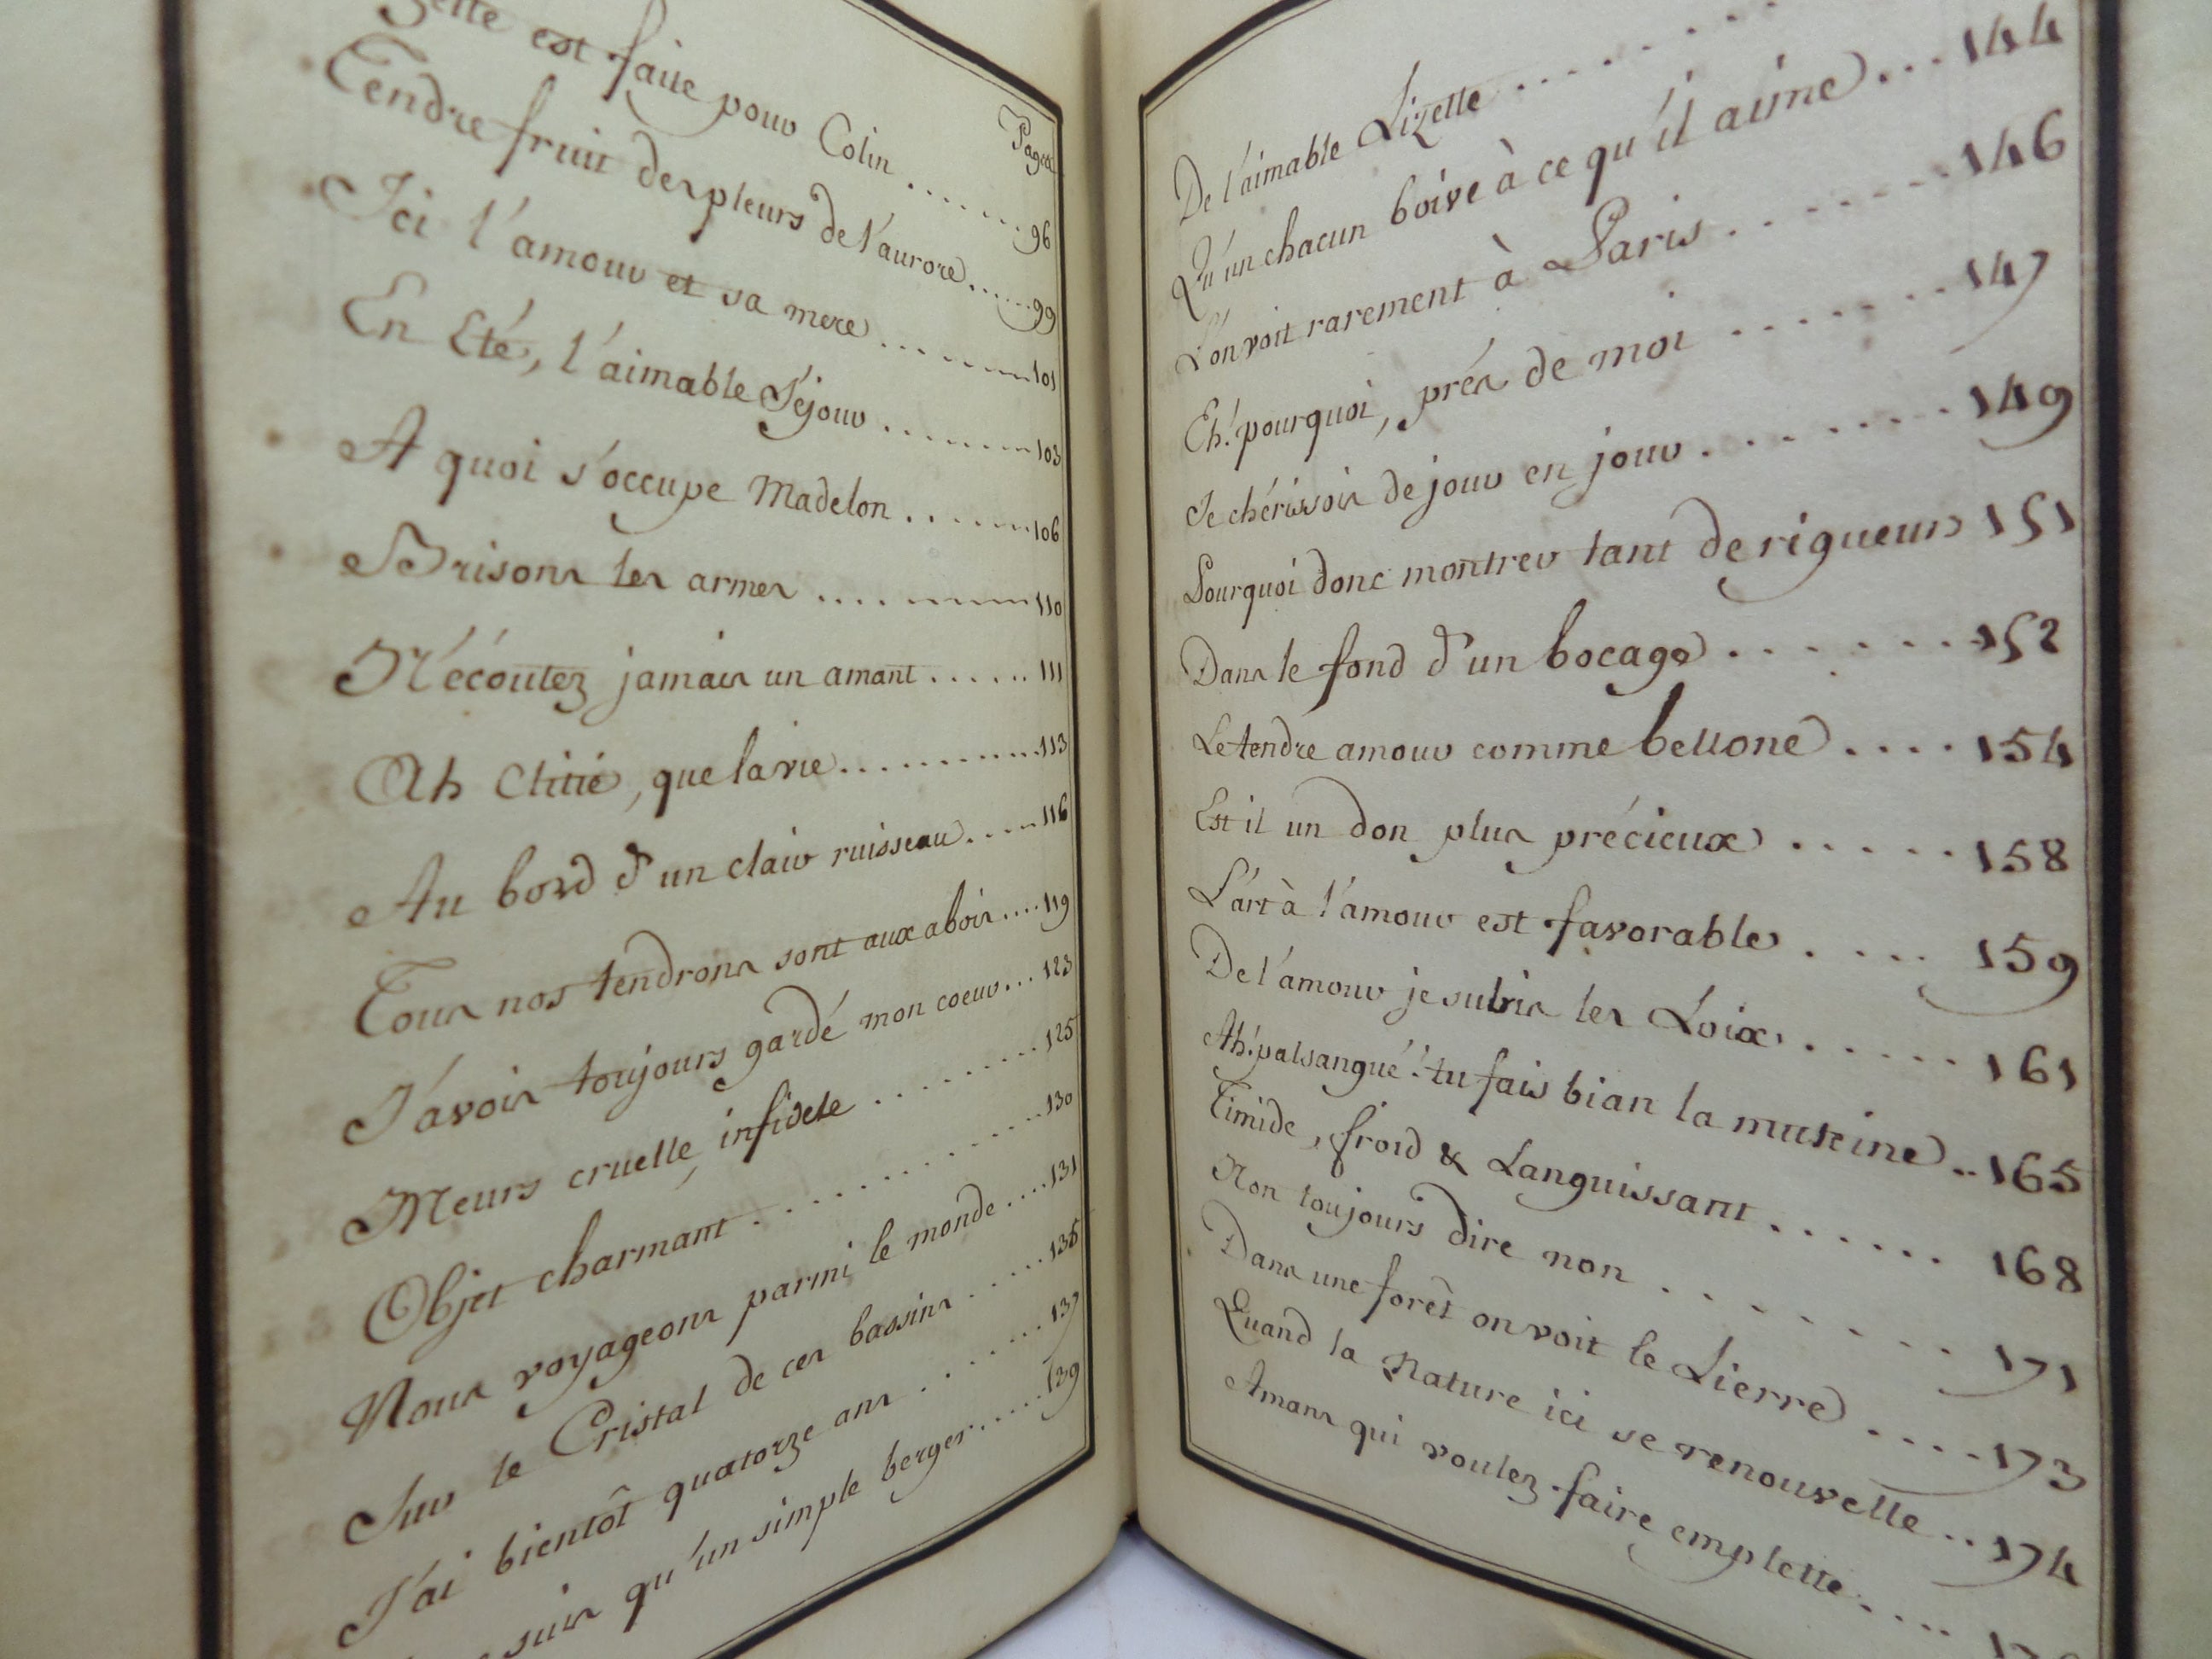 est faite pour Colin ...... 96
Pages
Tendre fruit des pleurs de l'aurore ...... 99
Ici l'amour et sa mere ...... 101
En Eté, l'aimable Séjour ...... 103
A quoi s'occupe Madelon ...... 106
Brisons les armes ...... 110
N'écoutez jamais un amant ...... 111
Ah Clitié, que la vie ...... 113
Au bord d'un clair ruisseau ...... 116
Tous nos tendrons sont aux abois .... 119
J'avois toujours gardé mon coeur ... 123
Meurs cruelle, infidele ...... 125
Objet charmant ...... 130
Nous voyageons parmi le monde .... 131
Sur le Cristal de ces bassins ...... 135
J'ai bientôt quatorze ans ...... 137
suis qu'un simple berger ...... 139
De l'aimable Lizette ......
Qu'un chacun boive à ce qu'il aime ... 144
L'on voit rarement à Paris ...... 146
Eh! pourquoi, prés de moi ...... 147
Je chérissois de jour en jour ...... 149
Pourquoi donc montrer tant de rigueurs 151
Dans le fond d'un bocage ...... 152
Le tendre amour comme bellone .... 154
Est il un don plus précieux ...... 158
L'art à l'amour est favorable .... 159
De l'amour je subis les Loix ...... 161
Ah! palsangué! tu fais bian la mutine .. 165
Timide, froid & Languissant ...... 168
Non toujours dire non ...... 171
Dans une forêt on voit le Lierre .... 173
Quand la Nature ici se renouvelle .. 174
Amans qui voulez faire emplette ....